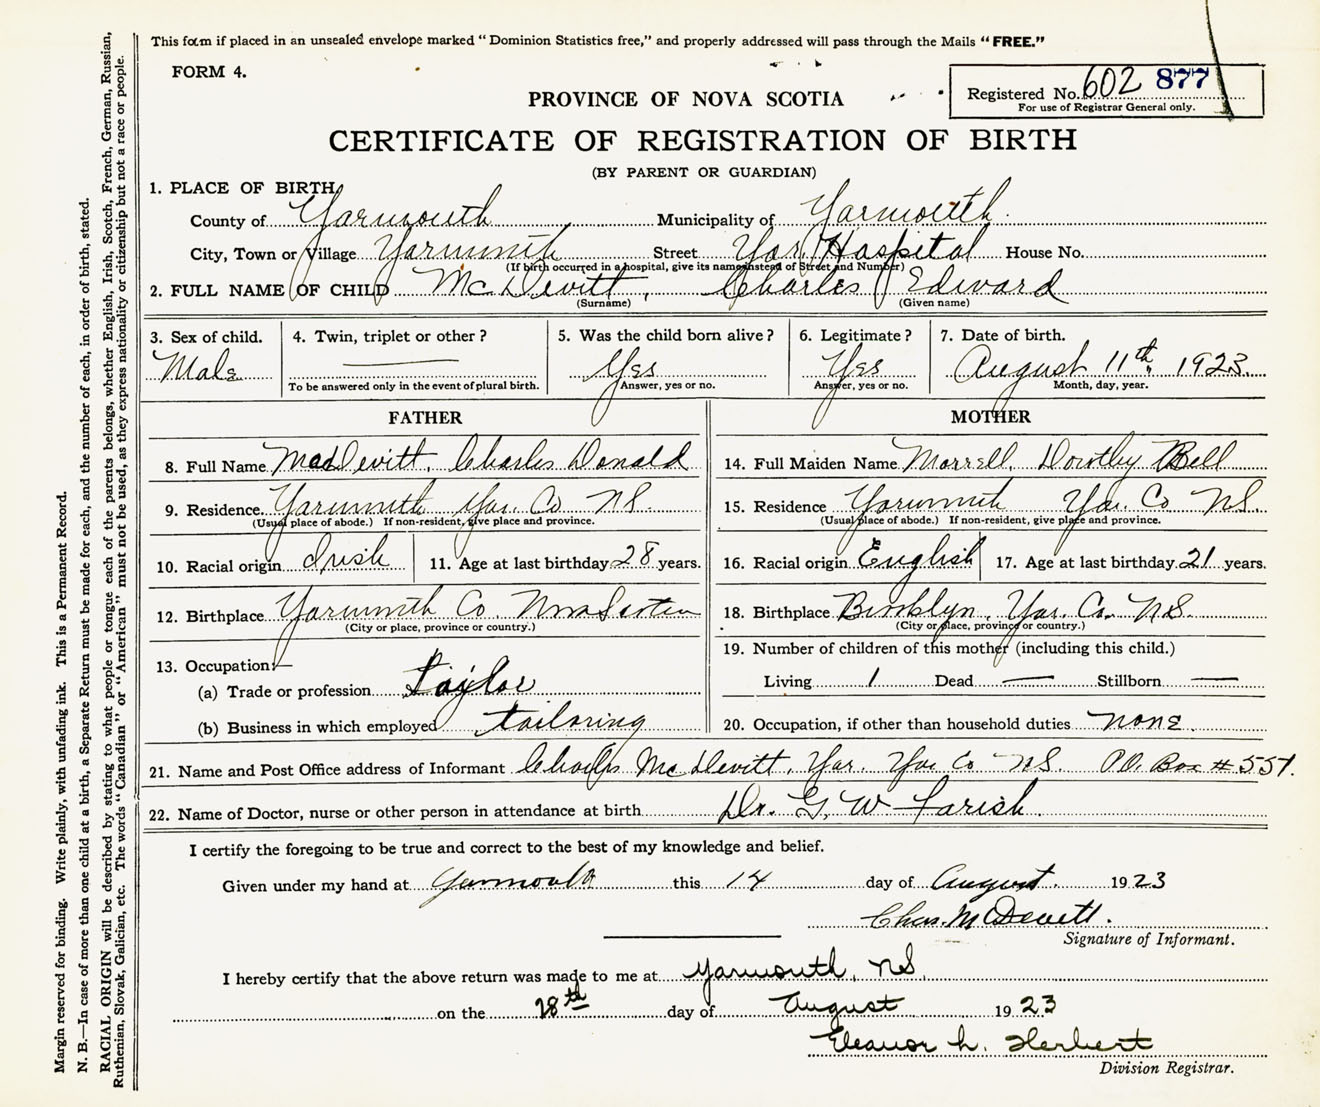 This form if placed in an unsealed envelope marked "Dominion Statistics free," and properly addressed will pass through the Mails "FREE."
FORM 4.
Registered No. 602 877
For use of Registrar General only.
PROVINCE OF NOVA SCOTIA
CERTIFICATE OF REGISTRATION OF BIRTH
(BY PARENT OR GUARDIAN)
1. PLACE OF BIRTH
County of Yarmouth Municipality of Yarmouth
City, Town or Village Yarmouth Street Yar. Hospital House No.
(If birth occurred in a hospital, give its name instead of Street and Number)
2. FULL NAME OF CHILD McDevitt, Charles Edward
(Surname) (Given name)
3. Sex of child. 4. Twin, triplet or other? 5. Was the child born alive? 6. Legitimate? 7. Date of birth.
Male — Yes Yes August 11th, 1923.
To be answered only in the event of plural birth. Answer, yes or no. Answer, yes or no. Month, day, year.
FATHER MOTHER
8. Full Name MacDevitt, Charles Donald 14. Full Maiden Name Morrell, Dorothy Bell
9. Residence. Yarmouth Yar. Co NS. 15. Residence Yarmouth Yar. Co NS.
(Usual place of abode.) If non-resident, give place and province. (Usual place of abode.) If non-resident, give place and province.
10. Racial origin Irish 11. Age at last birthday 28 years. 16. Racial origin English 17. Age at last birthday 21 years.
12. Birthplace Yarmouth Co. Nova Scotia 18. Birthplace Brooklyn, Yar. Co. NS.
(City or place, province or country.) (City or place, province or country.)
13. Occupation:— 19. Number of children of this mother (including this child.)
(a) Trade or profession Taylor Living 1 Dead — Stillborn —
(b) Business in which employed tailoring 20. Occupation, if other than household duties none
21. Name and Post Office address of Informant Charles McDevitt, Yar. Yar Co NS. P.O. Box #551.
22. Name of Doctor, nurse or other person in attendance at birth Dr. G. W Farish
I certify the foregoing to be true and correct to the best of my knowledge and belief.
Given under my hand at Yarmouth this 14 day of August. 1923
Chas. McDevitt.
Signature of Informant.
I hereby certify that the above return was made to me at Yarmouth, NS.
on the 28th day of August 1923
Eleanor L. Herbert
Division Registrar.
Margin reserved for binding. Write plainly, with unfading ink. This is a Permanent Record.
N. B.—In case of more than one child at a birth, a Separate Return must be made for each, and the number of each, in order of birth, stated.
RACIAL ORIGIN will be described by stating to what people or tongue each of the parents belongs, whether English, Irish, Scotch, French, German, Russian,
Ruthenian, Slovak, Galician, etc. The words "Canadian" or "American" must not be used, as they express nationality or citizenship but not a race or people.